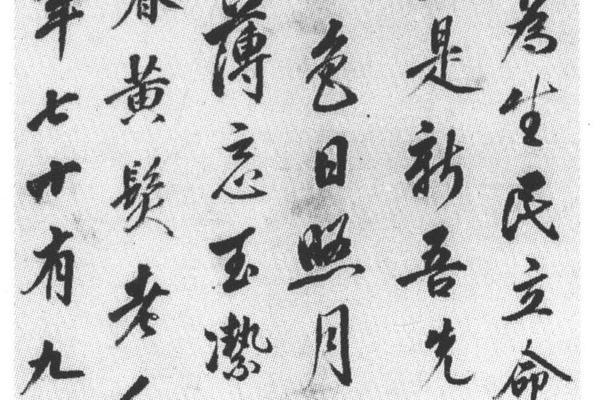 為生民立命
是新吾先
色日照月
薄忘玉潔
春黄髮老
年七十有九